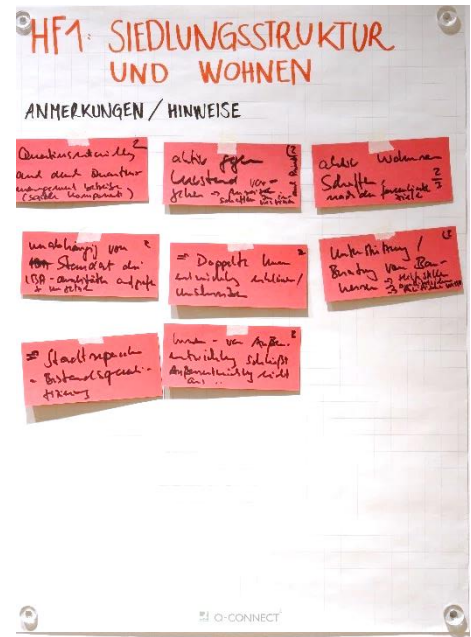 HF1: SIEDLUNGSSTRUKTUR
UND WOHNEN
ANMERKUNGEN / HINWEISE
Quartiersentwicklung 2
und durch Quartiers-
management betreiben
(soziale Komponente)
aktiv gegen
Leerstand vor-
gehen →
aktiv Wohnraum
Schaffen 2
nach den formulierten 3
Ziele
unabhängig von 2
Standort der
IBA-
= Doppelte Innen- 2
entwicklung erklären/
umschreiben
Unterstützung / 1,3
Beratung von Bau-
herren →
= Stadtreparatur
- Bestandsquali-
fizierung
Innen- vor Außen- 2
entwicklung schließt
Außenentwicklung nicht
aus ...
Q-CONNECT